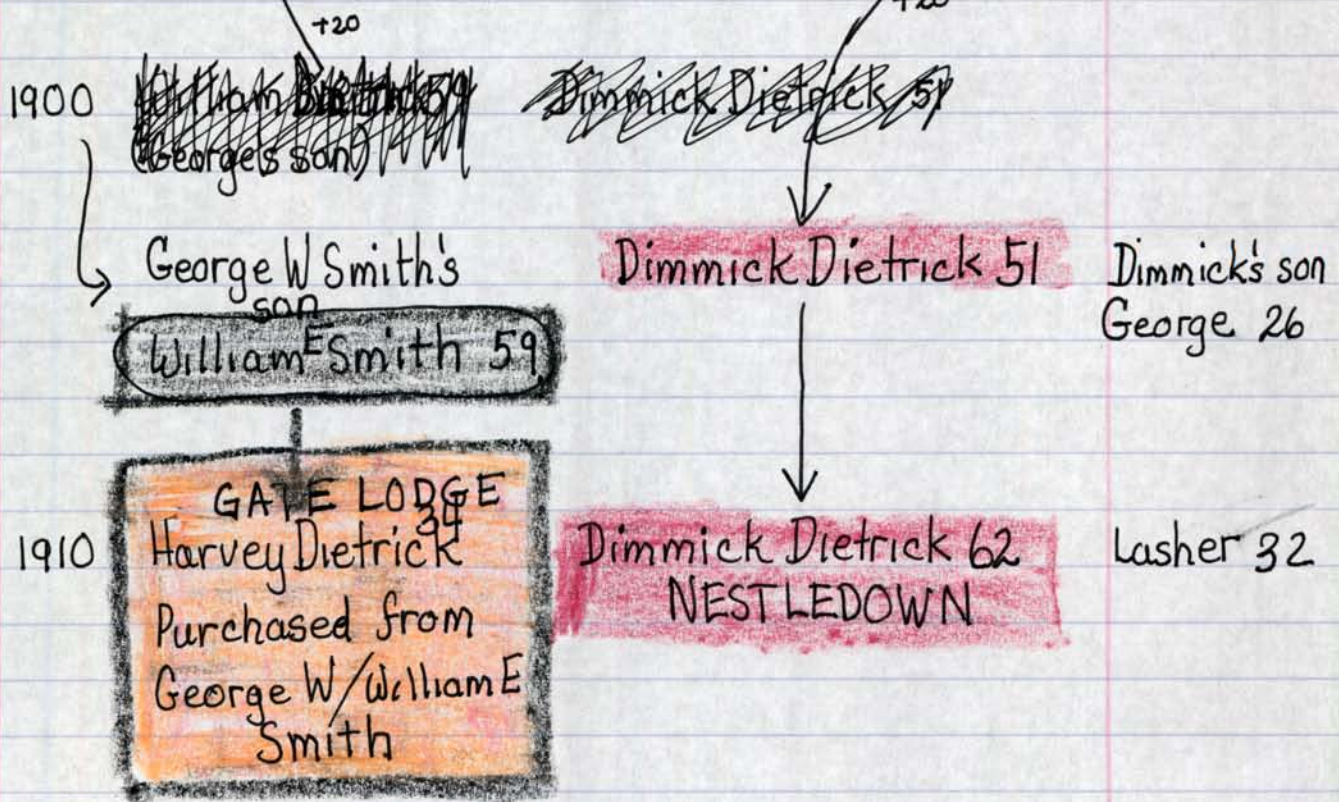 +20
+20
1900
William Dietrick 59
(George's son)
Dimmick Dietrick 51
George W Smith's
son
William E Smith 59
Dimmick Dietrick 51
Dimmick's son
George 26
1910
GATE LODGE
34
Harvey Dietrick
Purchased from
George W/William E
Smith
Dimmick Dietrick 62
NESTLEDOWN
Lasher 32